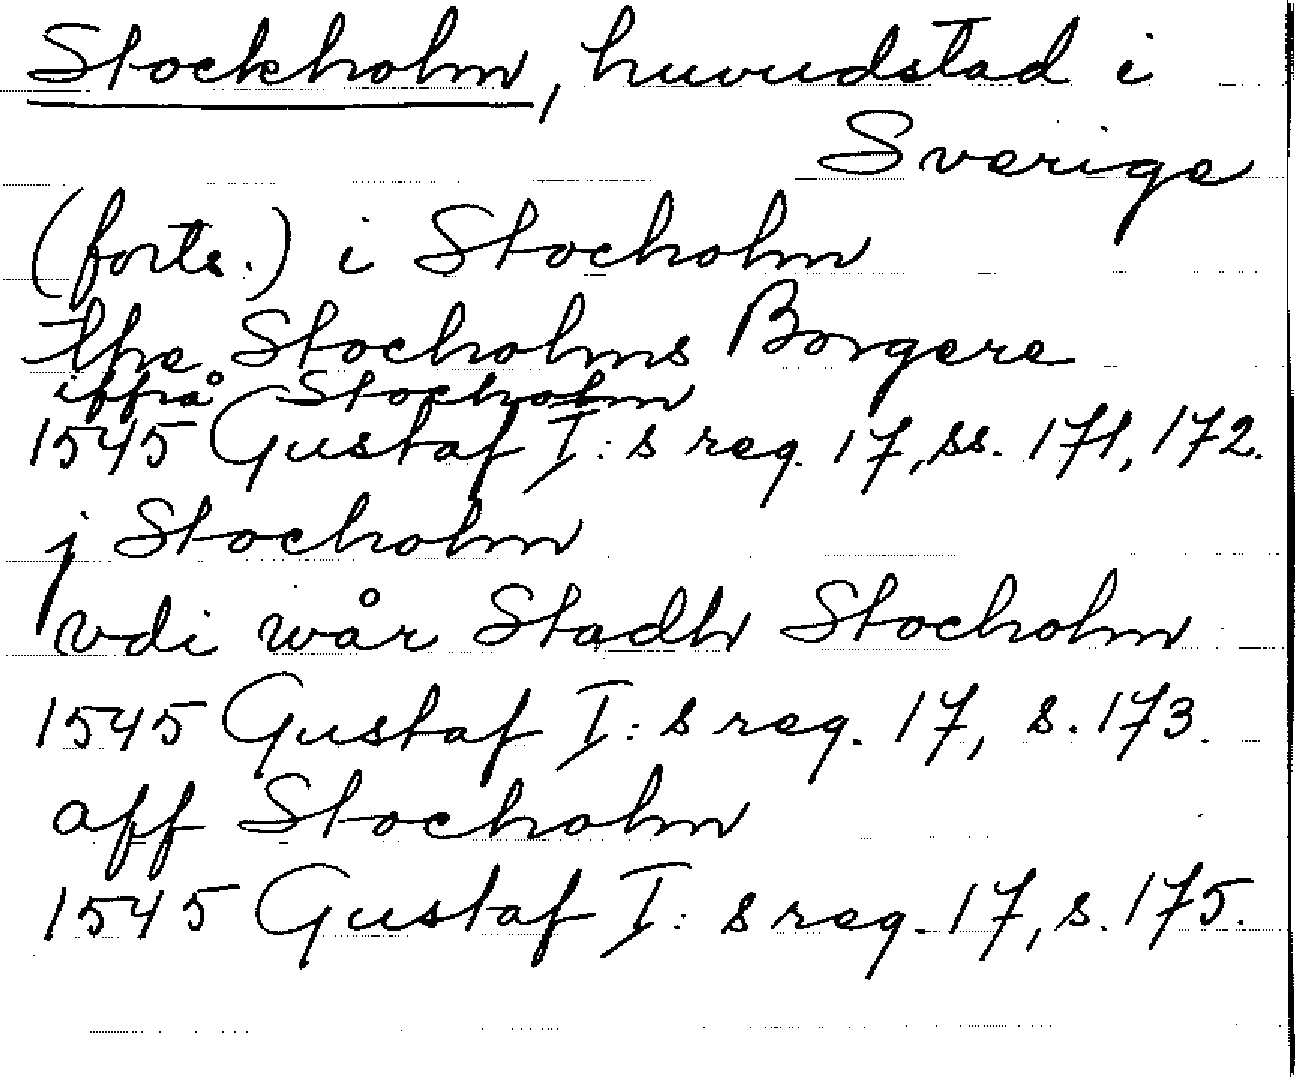 Stockholm, huvudstad i
Sverige
(forts.) i Stocholm
the Stocholms Borgere
iffrå Stocholm
1545 Gustaf I:s reg. 17, ss. 171, 172.
j Stocholm
vdi wår Stadh Stocholm
1545 Gustaf I:s reg. 17, s. 173.
aff Stocholm
1545 Gustaf I:s reg. 17, s. 175.